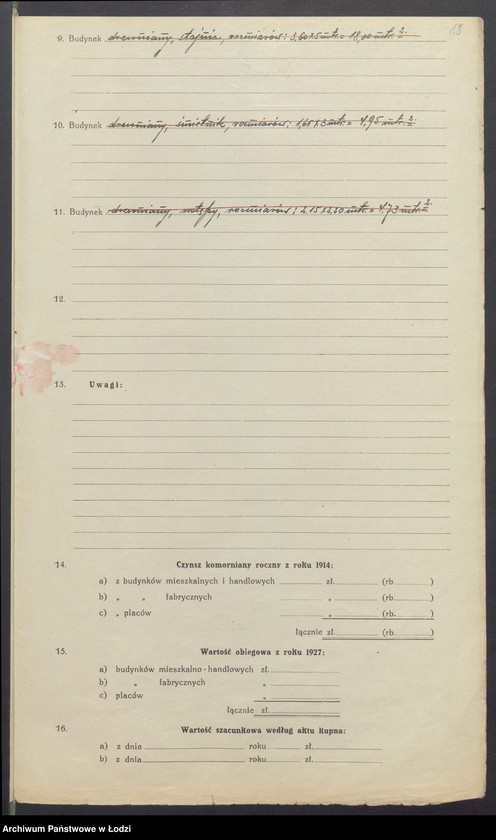 18
9. Budynek drewniany, stajnia, rozmiarów: 3,60x5 mtr. = 18,00 mtr. 2.
10. Budynek drewniany, śmietnik, rozmiarów: 1,65 x 3 mtr. = 4,95 mtr. 2.
11. Budynek drewniany, ustępy, rozmiarów: 2.15x2,20 mtr. = 4.73 mtr. 2.
12.
13. Uwagi:
14. Czynsz komorniany roczny z roku 1914:
a) z budynków mieszkalnych i handlowych zł. (rb. )
b) „ „ fabrycznych „ (rb. )
c) „ placów „ (rb. )
łącznie zł. (rb. )
15. Wartość obiegowa z roku 1927:
a) budynków mieszkalno-handlowych zł.
b) „ fabrycznych „
c) placów „
łącznie zł.
16. Wartość szacunkowa według aktu kupna:
a) z dnia roku zł.
b) z dnia roku zł.
Archiwum Państwowe w Łodzi